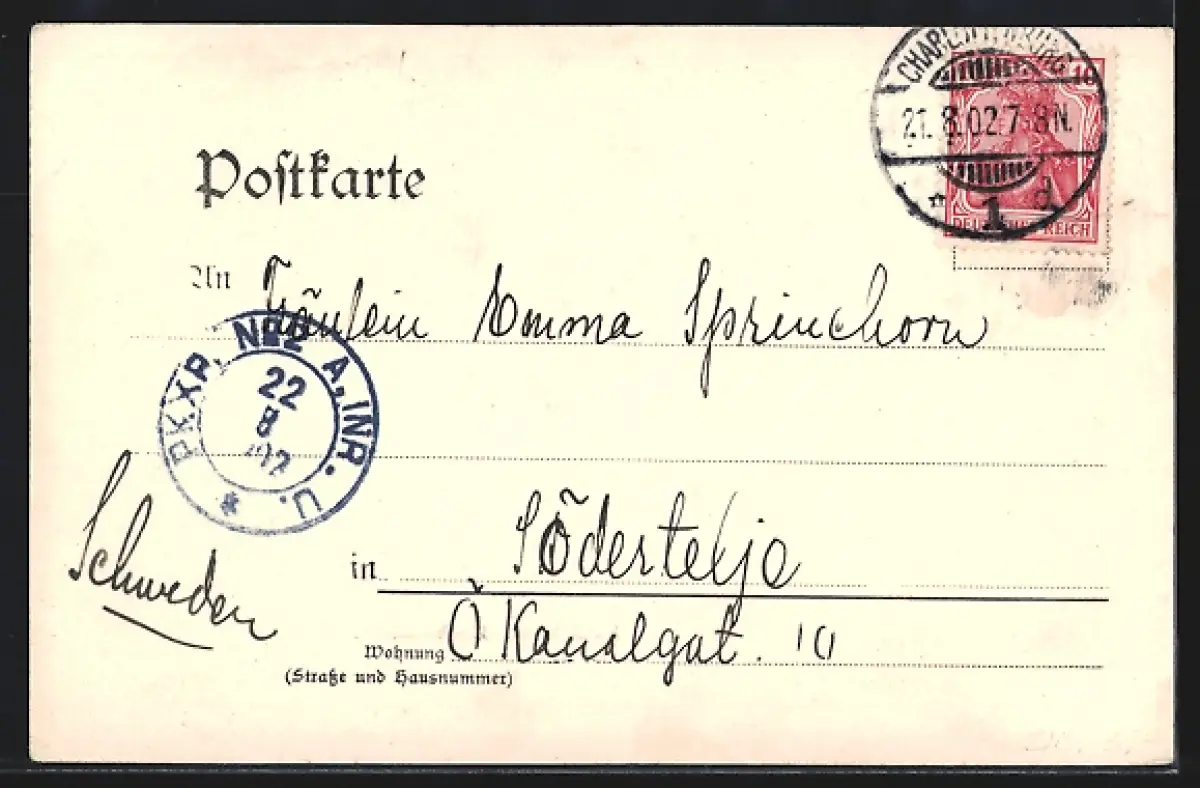 CHARLOTTENBURG
21.8.02.7-8N.
* 1 d.
10
DEUTSCHES REICH
Poſtkarte
An Fräulein Emma Sprinchorn
PKXP. No2 A, INR. U. *
22
8
02
Schweden
in Södertelje
Wohnung Ö Kanalgat. 10
(Straße und Hausnummer)